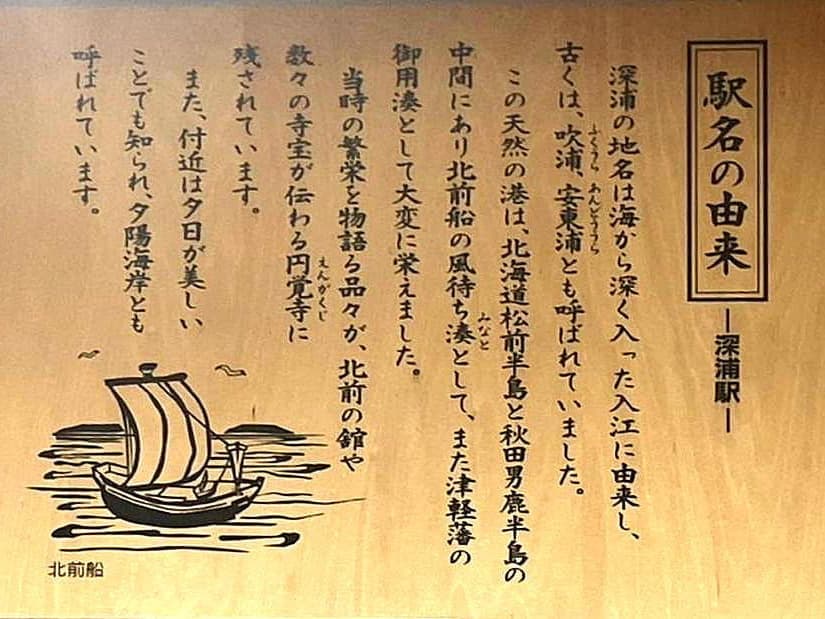 駅名の由来
―深浦駅―
深浦の地名は海から深く入った入江に由来し、
古くは、吹浦、安東浦とも呼ばれていました。
ふくうら あんどううら
この天然の港は、北海道松前半島と秋田男鹿半島の
中間にあり北前船の風待ち湊として、また津軽藩の
みなと
御用湊として大変に栄えました。
当時の繁栄を物語る品々が、北前の舘や
数々の寺宝が伝わる円覚寺に
えんがくじ
残されています。
また、付近は夕日が美しい
ことでも知られ、夕陽海岸とも
呼ばれています。
北前船